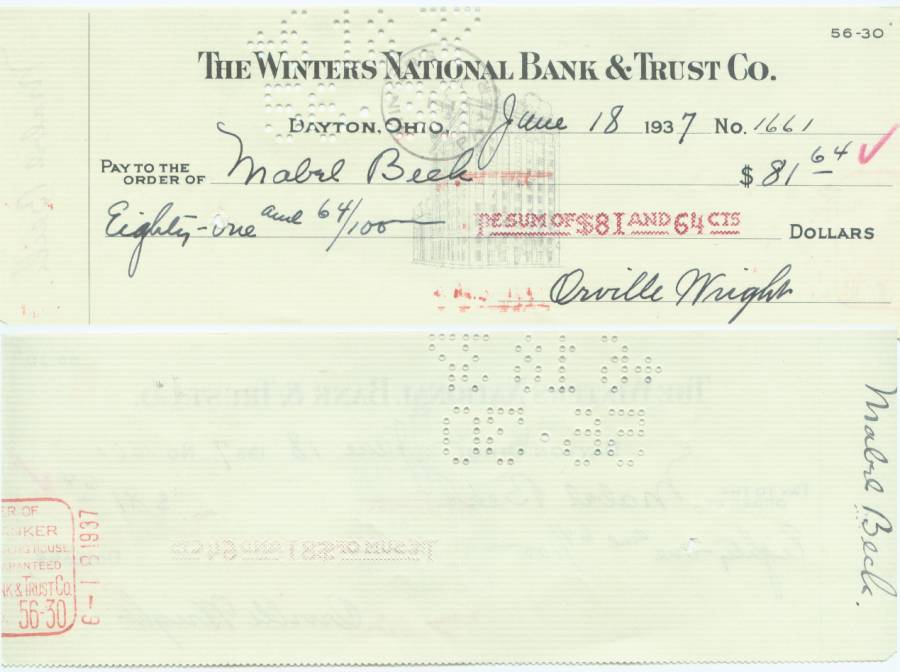 56-30
THE WINTERS NATIONAL BANK & TRUST CO.
DAYTON, OHIO, June 18 1937 No. 1661
PAY TO THE ORDER OF Mabel Beck $ 81 64
Eighty-one and 64/100 THE SUM OF $81 AND 64 CTS DOLLARS
Orville Wright
Mabel Beck.
ER OF
ANKER
HOUSE
ARANTEED
NK & TRUST CO.
56-30
6-18 1937